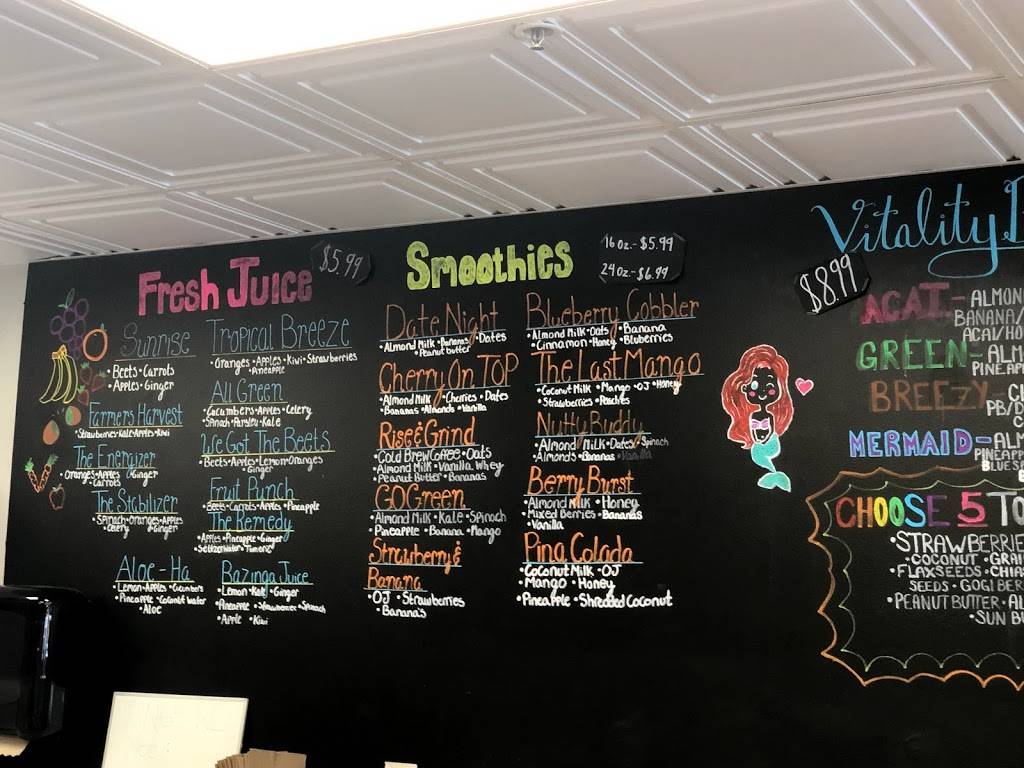 Fresh Juice
$5.99
Sunrise
• Beets • Carrots
• Apples • Ginger
Farmers Harvest
• Strawberries • Kale • Apples • Kiwi
The Energizer
• Oranges • Apples • Ginger
• Carrots
The Stabilizer
• Spinach • Oranges • Apples
• Celery • Ginger
Aloe - Ha
• Lemon • Apples • Cucumbers
• Pineapple • Coconut Water
• Aloe
Tropical Breeze
• Oranges • Apples • Kiwi • Strawberries
• Pineapple
All Green
• Cucumbers • Apples • Celery
• Parsley • Kale
We Got The Beets
• Beets • Apples • Lemon • Oranges
• Ginger
Fruit Punch
• Beets • Carrots • Apples • Pineapple
The Remedy
• Apples • Pineapple • Ginger
• Seltzer Water • Tumeric
Bazinga Juice
• Lemon • Kale • Ginger
• Pineapple • Strawberries • Spinach
• Apple • Kiwi
Smoothies
16 oz. - $5.99
24 oz. - $6.99
Date Night
• Almond Milk • Bananas • Dates
• Peanut butter
Cherry On TOP
• Almond Milk • Cherries • Dates
• Bananas • Almonds • Vanilla
Rise & Grind
• Cold Brew Coffee • Oats
• Almond Milk • Vanilla Whey
• Peanut Butter • Bananas
GO Green
• Almond Milk • Kale • Spinach
• Pineapple • Banana • Mango
Strawberry &
Banana
• OJ • Strawberries
• Banana's
Blueberry Cobbler
• Almond Milk • Oats • Banana
• Cinnamon • Honey • Bluberries
The Last Mango
• Coconut Milk • Mango • OJ • Honey
• Strawberries • Peaches
Nutty Buddy
• Almond Milk • Dates • Spinach
• Almonds • Bananas • Vanilla
Berry Burst
• Almond Milk • Honey
• Mixed Berries • Bananas
• Vanilla
Pina Colada
• Coconut Milk • OJ
• Mango • Honey
• Pineapple • Shredded Coconut
Vitality
$8.99
ACAI - ALMON
BANANA/
ACAI/HO
GREEN - ALM
PINEAP
BREEZY
PB/D
MERMAID - ALM
PINEAPP
BLUES
CHOOSE 5 TO
• STRAWBERRIE
• COCONUT • GRA
• FLAXSEEDS • CHIA
SEEDS • GOGI BER
• PEANUT BUTTER • AL
• SUN BU